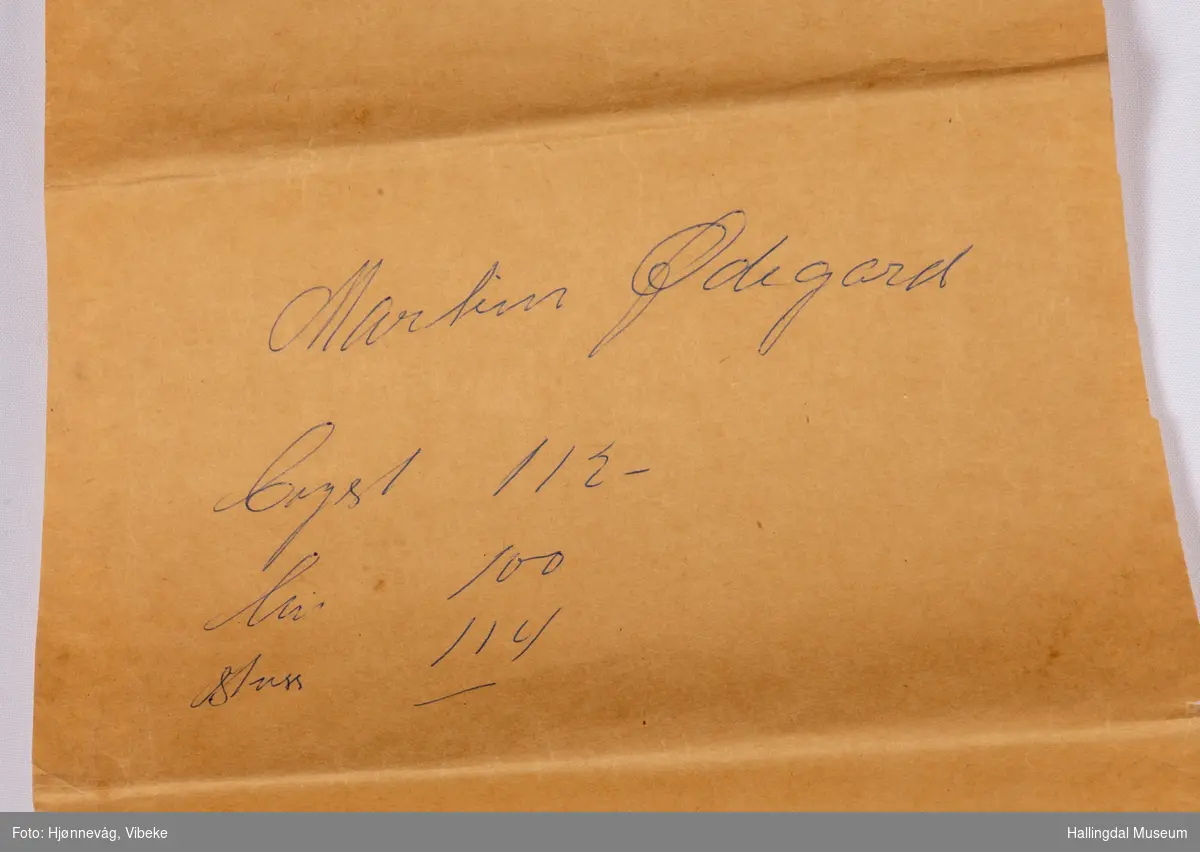 Martin Ødegard
Bryst 112-
liv 100
stuss 114
Foto: Hjønnevåg, Vibeke
Hallingdal Museum